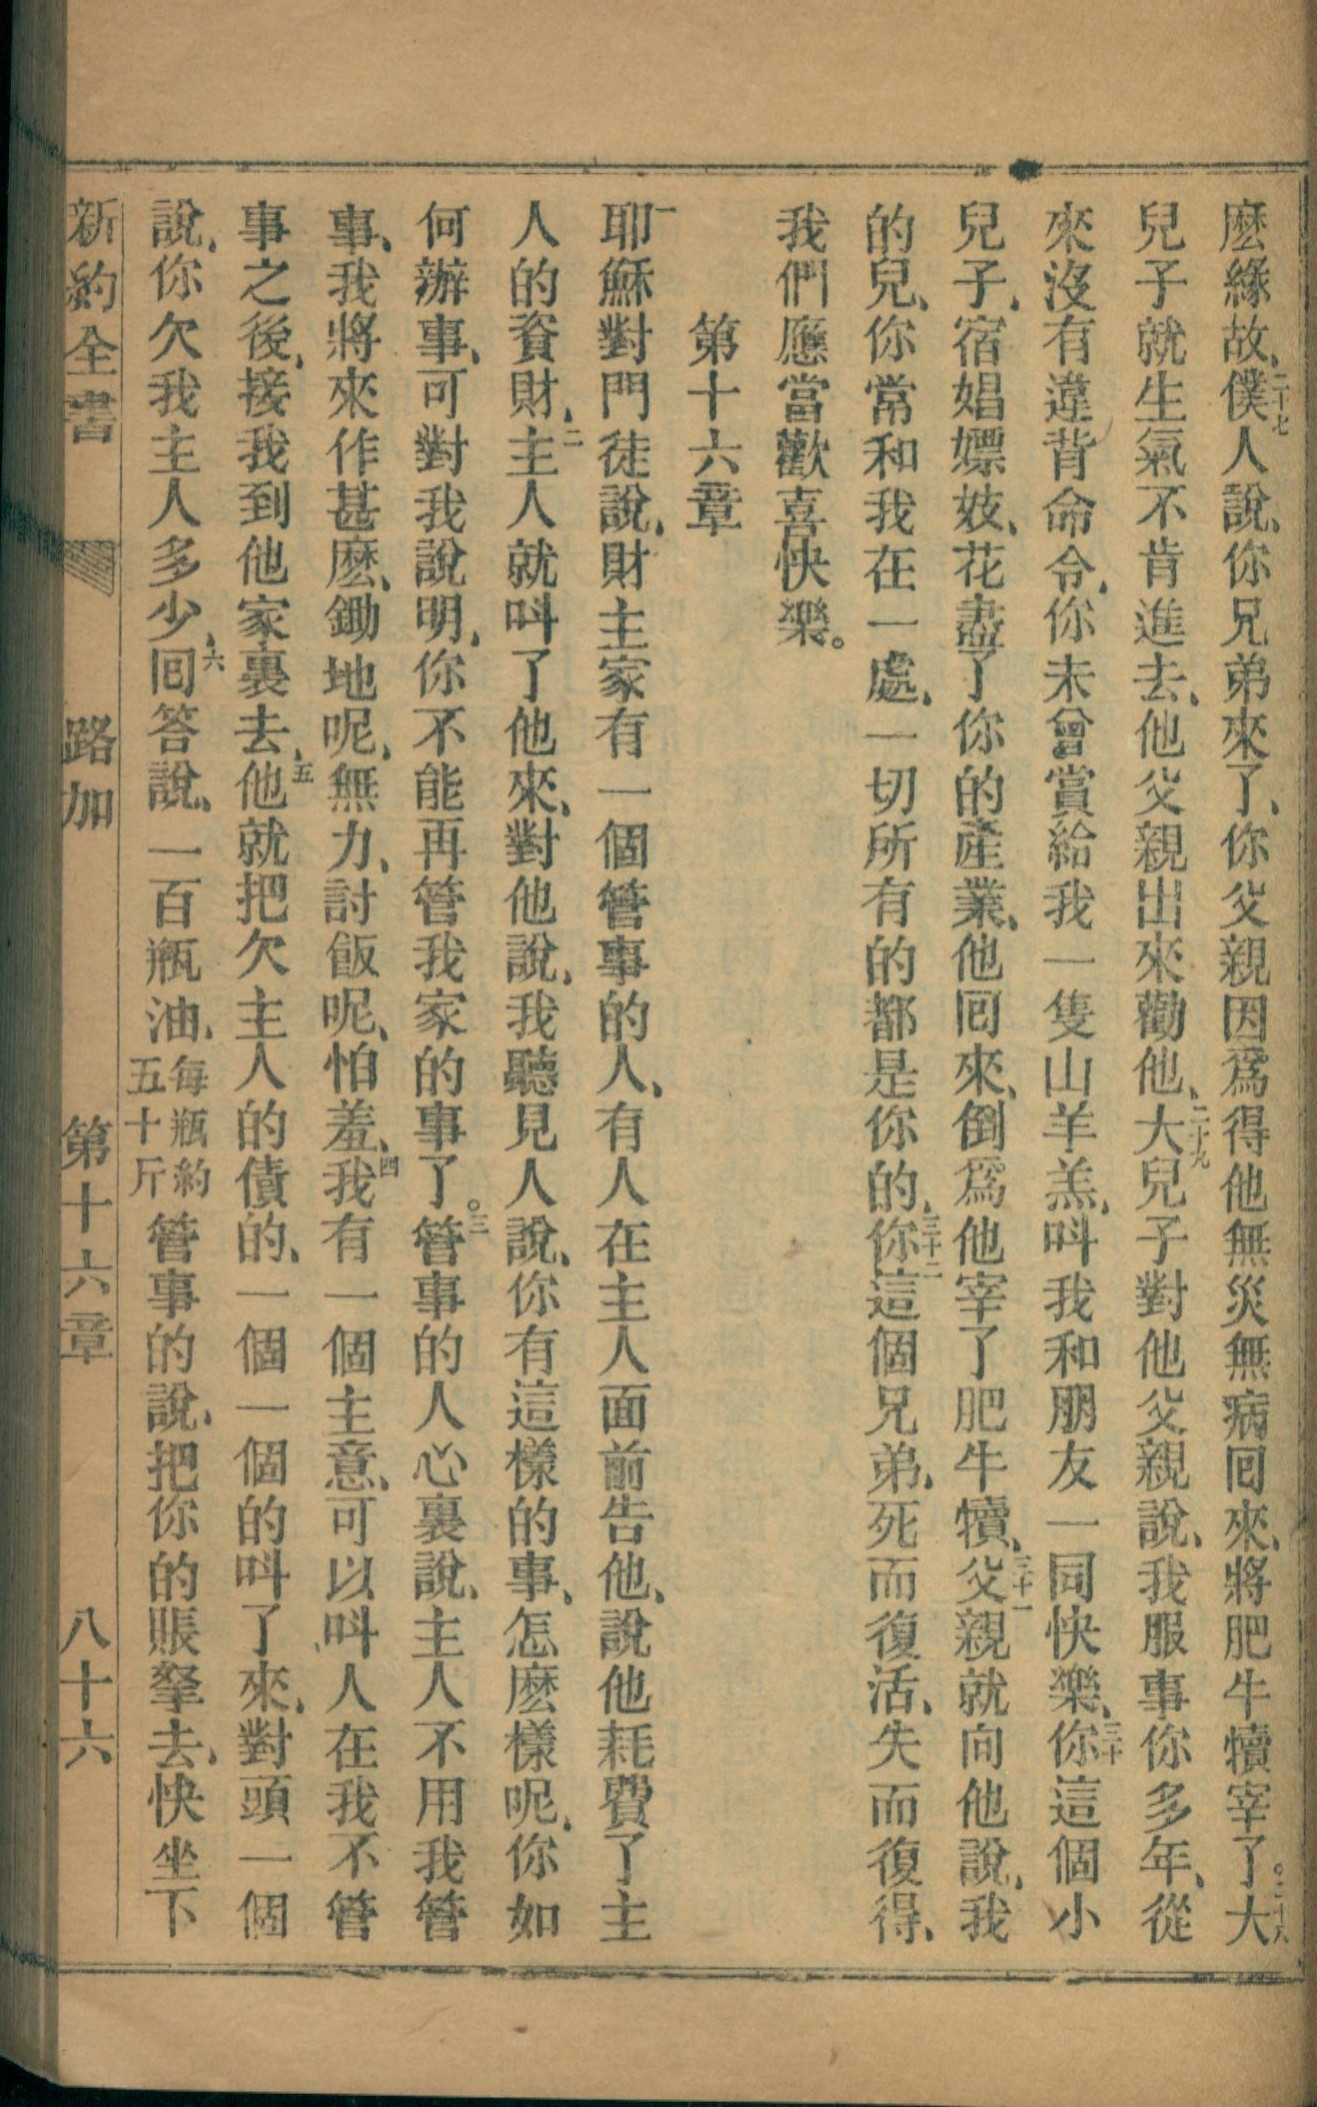 麽緣故、二十七僕人說、你兄弟來了、你父親因爲得他無災無病囘來、將肥牛犢宰了。二十八大
兒子就生氣不肯進去、他父親出來勸他、二十九大兒子對他父親說、我服事你多年、從
來沒有違背命令、你未曾賞給我一隻山羊羔、叫我和朋友一同快樂、三十你這個小
兒子、宿娼嫖妓、花盡了你的產業、他囘來、倒爲他宰了肥牛犢、三十一父親就向他說、我
的兒、你常和我在一處、一切所有的都是你的、三十二你這個兄弟、死而復活、失而復得、
我們應當歡喜快樂。
第十六章
一耶穌對門徒說、財主家有一個管事的人、有人在主人面前告他、說他耗費了主
人的資財、二主人就叫了他來、對他說、我聽見人說、你有這樣的事、怎麽樣呢、你如
何辦事、可對我說明、你不能再管我家的事了。三管事的人心裏說、主人不用我管
事、我將來作甚麽、鋤地呢、無力、討飯呢、怕羞、四我有一個主意、可以叫人在我不管
事之後、接我到他家裏去、五他就把欠主人的債的、一個一個的叫了來、對頭一個
說、你欠我主人多少、六囘答說、一百瓶油、每瓶約五十斤管事的說、把你的賬拏去、快坐下
新約全書 路加 第十六章 八十六